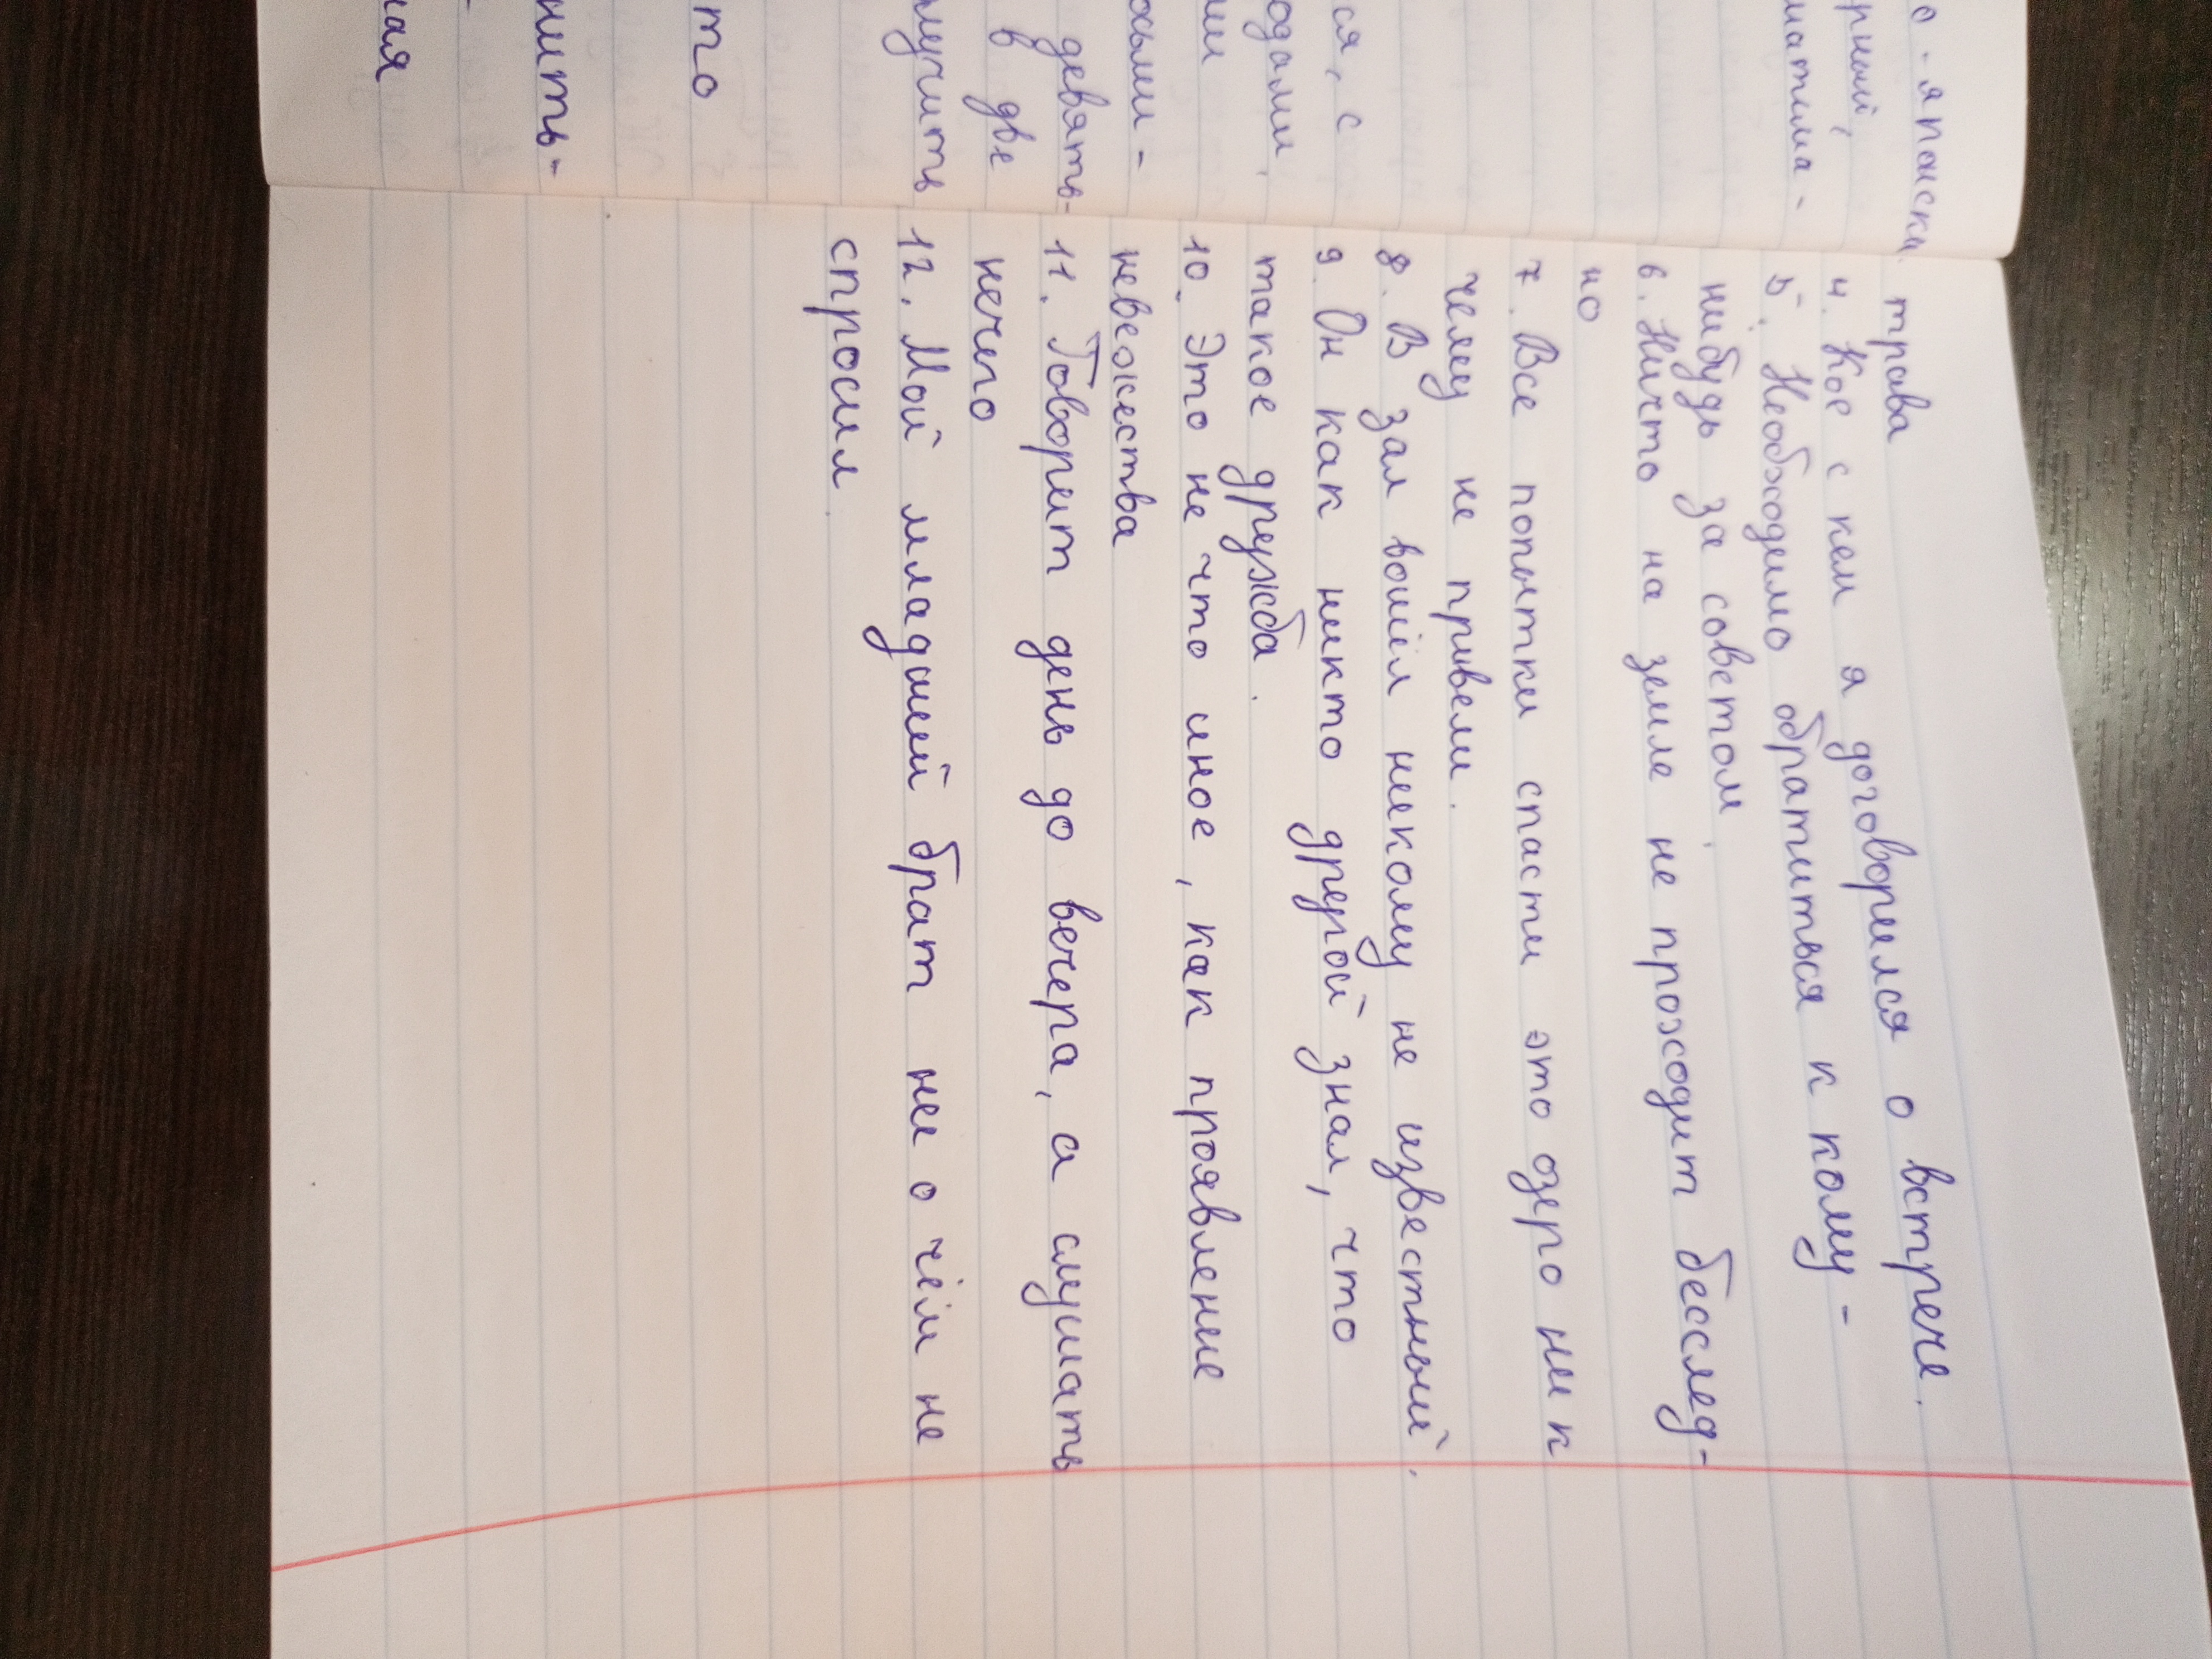 с - япански
рный,
матима -
ся, с
одами,
ми
охими -
девять -
в две
мучить
то
нить -
ная
трава
4. Кое с кем я договорился о встрече.
5. Необходимо обратиться к кому -
нибудь за советом.
6. Ничто на земле не проходит бесслед -
но
7. Все попытки спасти это озеро ни к
чему не привели.
8. В зал вошёл никому не известный.
9. Он как никто другой знал, что
такое дружба.
10. Это не что иное, как проявление
невежества
11. Говорит день до вечера, а слушать
нечего
12. Мой младший брат ни о чём не
спросил.